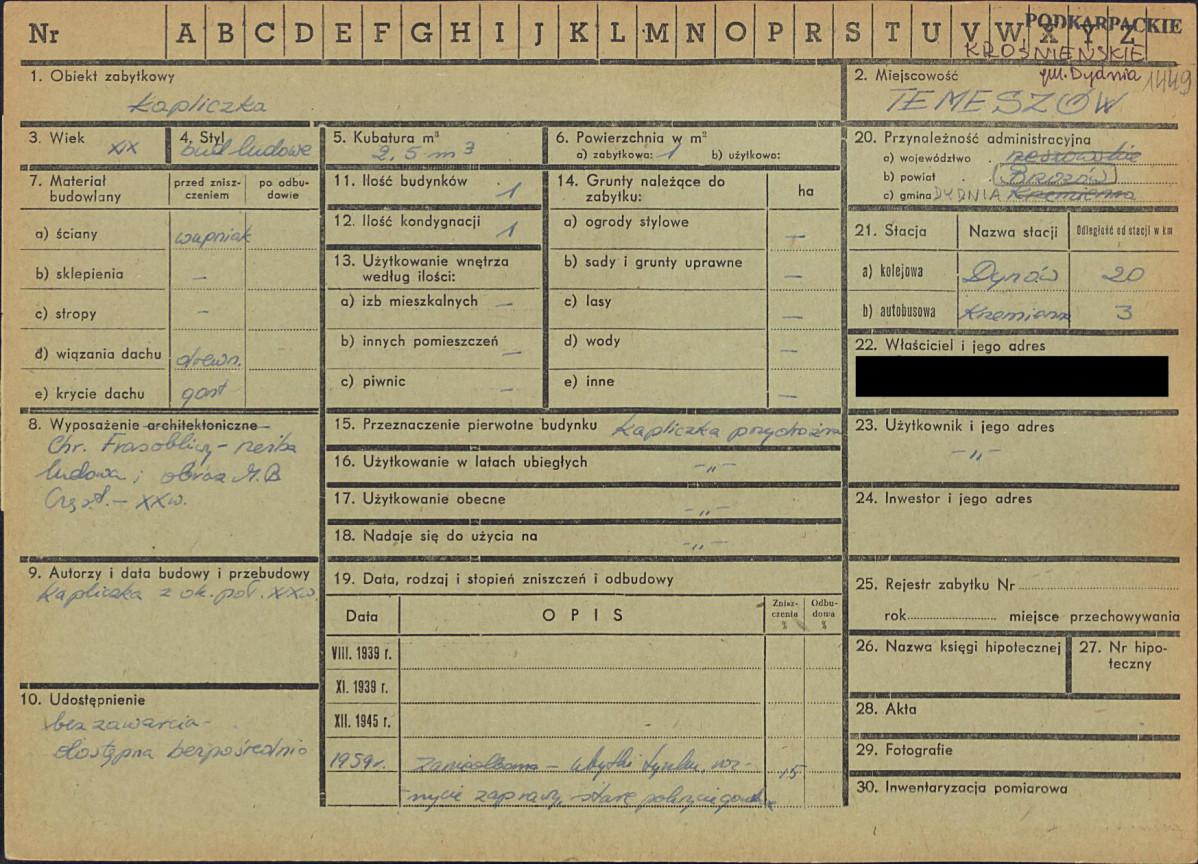 Nr A B C D E F G H I J K L M N O P R S T U V W X Y Z
PODKARPACKIE
KROŚNIEŃSKIE
gm. Dydnia 1449
1. Obiekt zabytkowy
Kapliczka
2. Miejscowość
TEMESZÓW
3. Wiek
XIX
4. Styl
bud. ludowe
5. Kubatura m³
2,5 m3
6. Powierzchnia w m²
a) zabytkowa: 1 b) użytkowa:
20. Przynależność administracyjna
a) województwo rzeszowskie
b) powiat Brzozów
c) gmina DYDNIA Krzemienna
7. Materiał budowlany
przed zniszczeniem
po odbudowie
a) ściany wapniak
b) sklepienia –
c) stropy –
d) wiązania dachu drewn.
e) krycie dachu gont
11. Ilość budynków 1
12. Ilość kondygnacji 1
13. Użytkowanie wnętrza
według ilości:
a) izb mieszkalnych –
b) innych pomieszczeń –
c) piwnic –
14. Grunty należące do
zabytku: ha
a) ogrody stylowe –
b) sady i grunty uprawne –
c) lasy –
d) wody –
e) inne –
21. Stacja Nazwa stacji Odległość od stacji w km
a) kolejowa Dynów 20
b) autobusowa Krzemienna 3
22. Właściciel i jego adres
8. Wyposażenie architektoniczne
Chr. Frasobliwy – rzeźba
ludowa; obraz M.B
Częst. – XX w.
15. Przeznaczenie pierwotne budynku Kapliczka przydrożna
16. Użytkowanie w latach ubiegłych –„–
17. Użytkowanie obecne –„–
18. Nadaje się do użycia na –„–
23. Użytkownik i jego adres
–„–
24. Inwestor i jego adres
9. Autorzy i data budowy i przebudowy
Kapliczka z ok. poł. XX w.
10. Udostępnienie
bez zawarcia –
dostępna bezpośrednio
19. Data, rodzaj i stopień zniszczeń i odbudowy
Data OPIS Zniszczenia % Odbudowa %
VIII. 1939 r.
XI. 1939 r.
XII. 1945 r.
1959 r. – ubytki tynku, roz- 15
mycie zaprawy, stare pokrycie
25. Rejestr zabytku Nr
rok miejsce przechowywania
26. Nazwa księgi hipotecznej
27. Nr hipoteczny
28. Akta
29. Fotografie
30. Inwentaryzacja pomiarowa